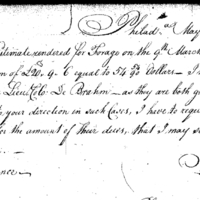 Philad.a May
stimate rendered for Forage on the 9th March
m of £20. 9. 6 equal to 54 50/90 Dollars — I
Lieut. Colo. De Brahm — as they are both g
to your direction in such Cases, I have to requ
for the amount of their dues, that I may s
ence